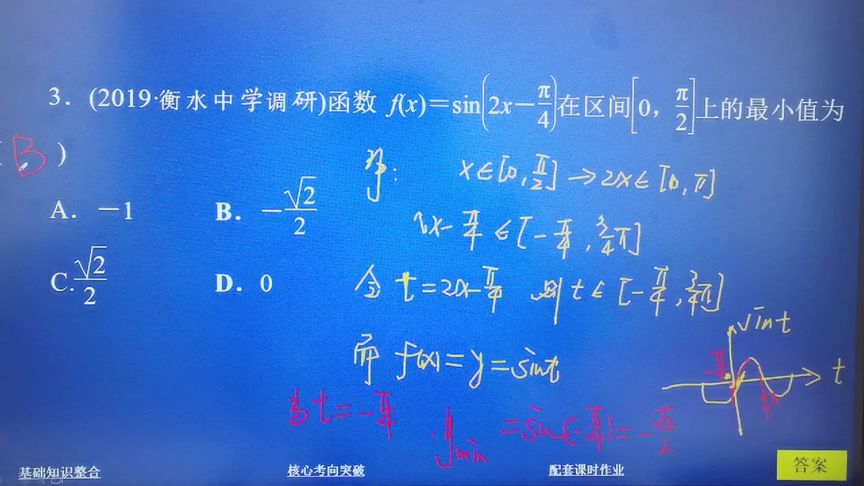 3. (2019·衡水中学调研)函数 f(x)=sin(2x-π/4)在区间[0, π/2]上的最小值为
( B )
A. -1 B. -√2/2
C. √2/2 D. 0
x∈[0,π/2]→2x∈[0,π]
2x-π/4∈[-π/4,3/4π]
令 t=2x-π/4 则 t∈[-π/4,3/4π]
而 f(x)=y=sint
当t=-π/4 ymin=sin(-π/4)=-√2/2
sint
t
基础知识整合 核心考向突破 配套课时作业 答案